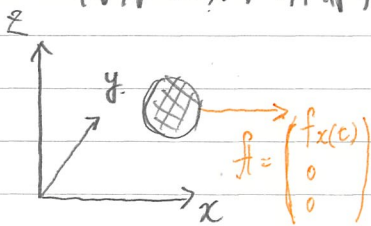 z
y.
x
f = (f_x(t)
0
0)